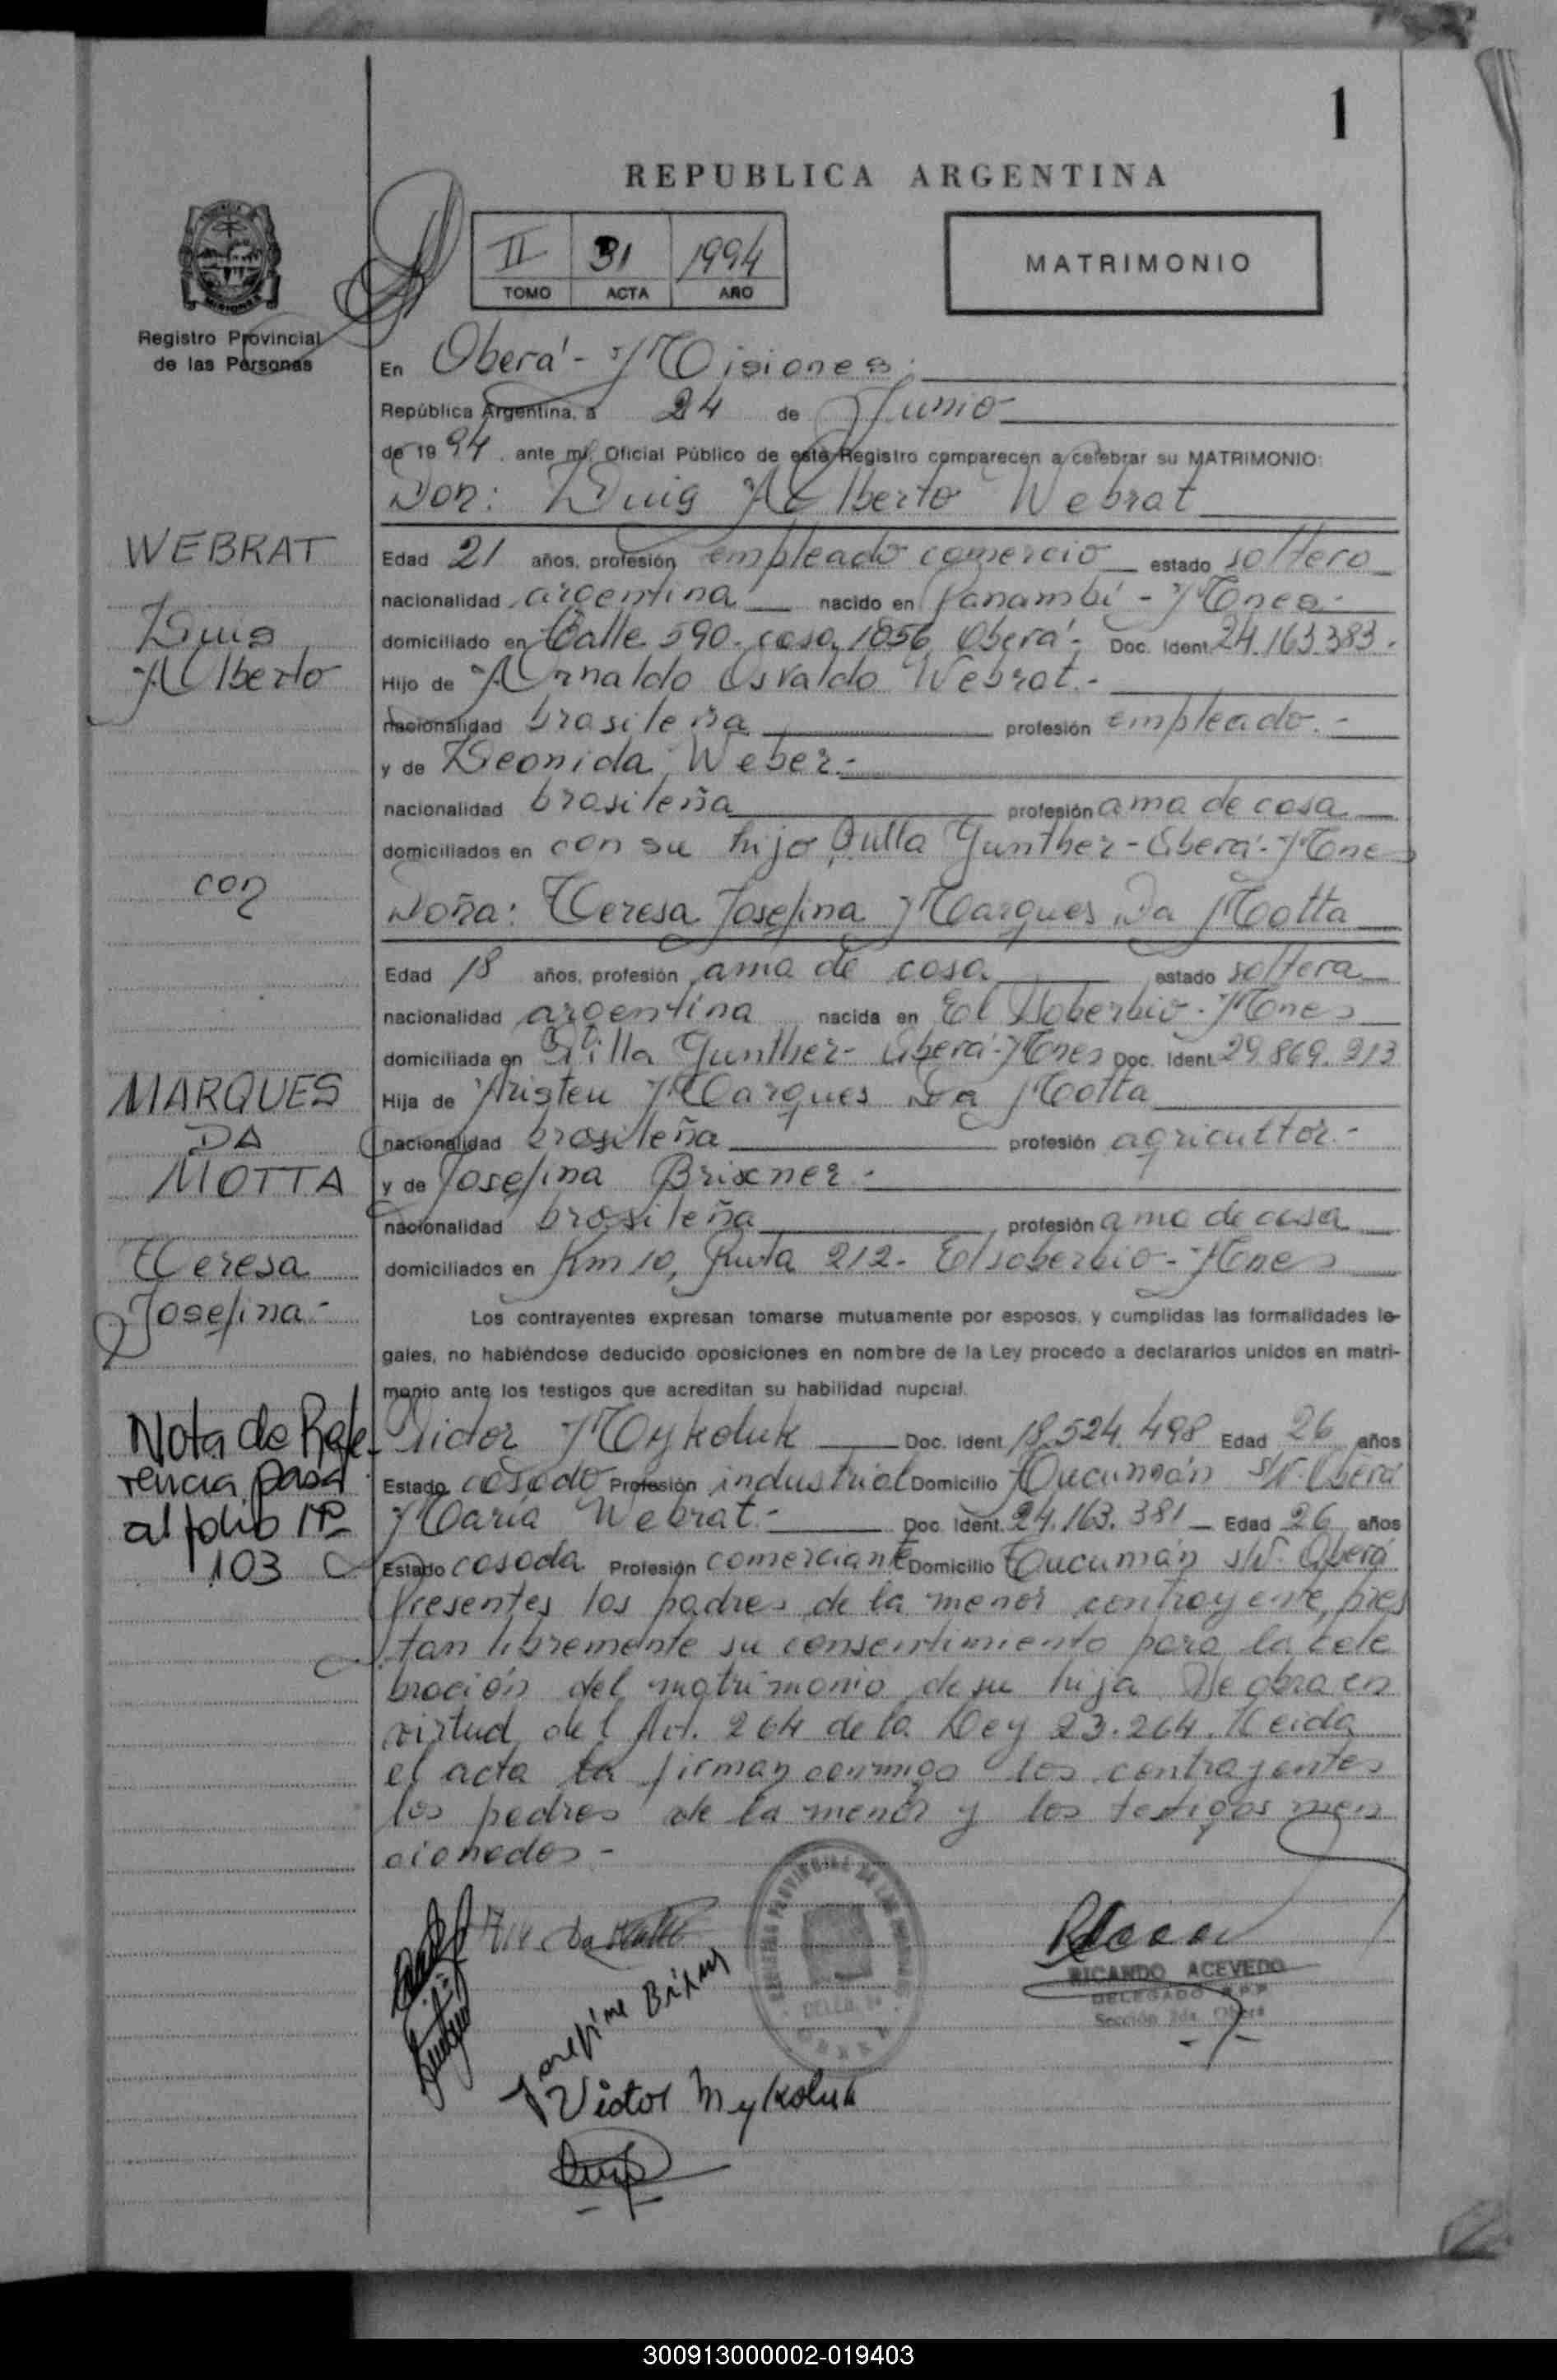 1
REPUBLICA ARGENTINA
II 31 1994
TOMO ACTA AÑO
MATRIMONIO
Registro Provincial
de las Personas
En Oberá - Misiones
República Argentina, a 24 de Junio
de 1994, ante mí, Oficial Público de este Registro comparecen a celebrar su MATRIMONIO:
Don: Luis Alberto Webrat
WEBRAT
Luis
Alberto
Edad 21 años, profesión empleado comercio estado soltero
nacionalidad argentina nacido en Panambí - Mnes.
domiciliado en Calle 590 - casa 1056 Oberá - Doc. Ident. 24.163.383.
Hijo de Arnaldo Osvaldo Webrat.-
nacionalidad brasileña profesión empleado.-
y de Leonida Weber.-
nacionalidad brasileña profesión ama de casa
domiciliados en con su hijo Gunther - Oberá - Mnes
con
Doña: Teresa Josefina Marques Da Motta
Edad 18 años, profesión ama de casa estado soltera
nacionalidad argentina nacida en El Soberbio - Mnes
domiciliada en Villa Gunther - Oberá - Mnes Doc. Ident. 29.869.213
MARQUES
DA
MOTTA
Teresa
Josefina.-
Hija de Aristeu Marques Da Motta
nacionalidad brasileña profesión agricultor.-
y de Josefina Brixner.-
nacionalidad brasileña profesión ama de casa
domiciliados en Km 10, Ruta 212 - El soberbio - Mnes
Los contrayentes expresan tomarse mutuamente por esposos, y cumplidas las formalidades le-
gales, no habiéndose deducido oposiciones en nombre de la Ley procedo a declararlos unidos en matri-
monio ante los testigos que acreditan su habilidad nupcial.
Nota de Refe-
rencia pasa
al folio Nº
103
Victor Mykoluk Doc. Ident. 18.524.498 Edad 26 años
Estado casado Profesión industrial Domicilio Tucumán s/N. Oberá
María Webrat.- Doc. Ident. 24.163.381 Edad 26 años
Estado casada Profesión comerciante Domicilio Tucumán s/N. Oberá
Presentes los padres de la menor contrayente, pres
tan libremente su consentimiento para la cele
bración del matrimonio de su hija. Se obra en
virtud del Art. 264 de la Ley 23.264. Leida
el acta la firman conmigo los contrayentes
los padres de la menor y los testigos men
cionados -
Da Motta
Josefina Brixner
Victor Mykoluk
RICARDO ACEVEDO
DELEGADO R.P.P
Sección 2da. Oberá
300913000002-019403